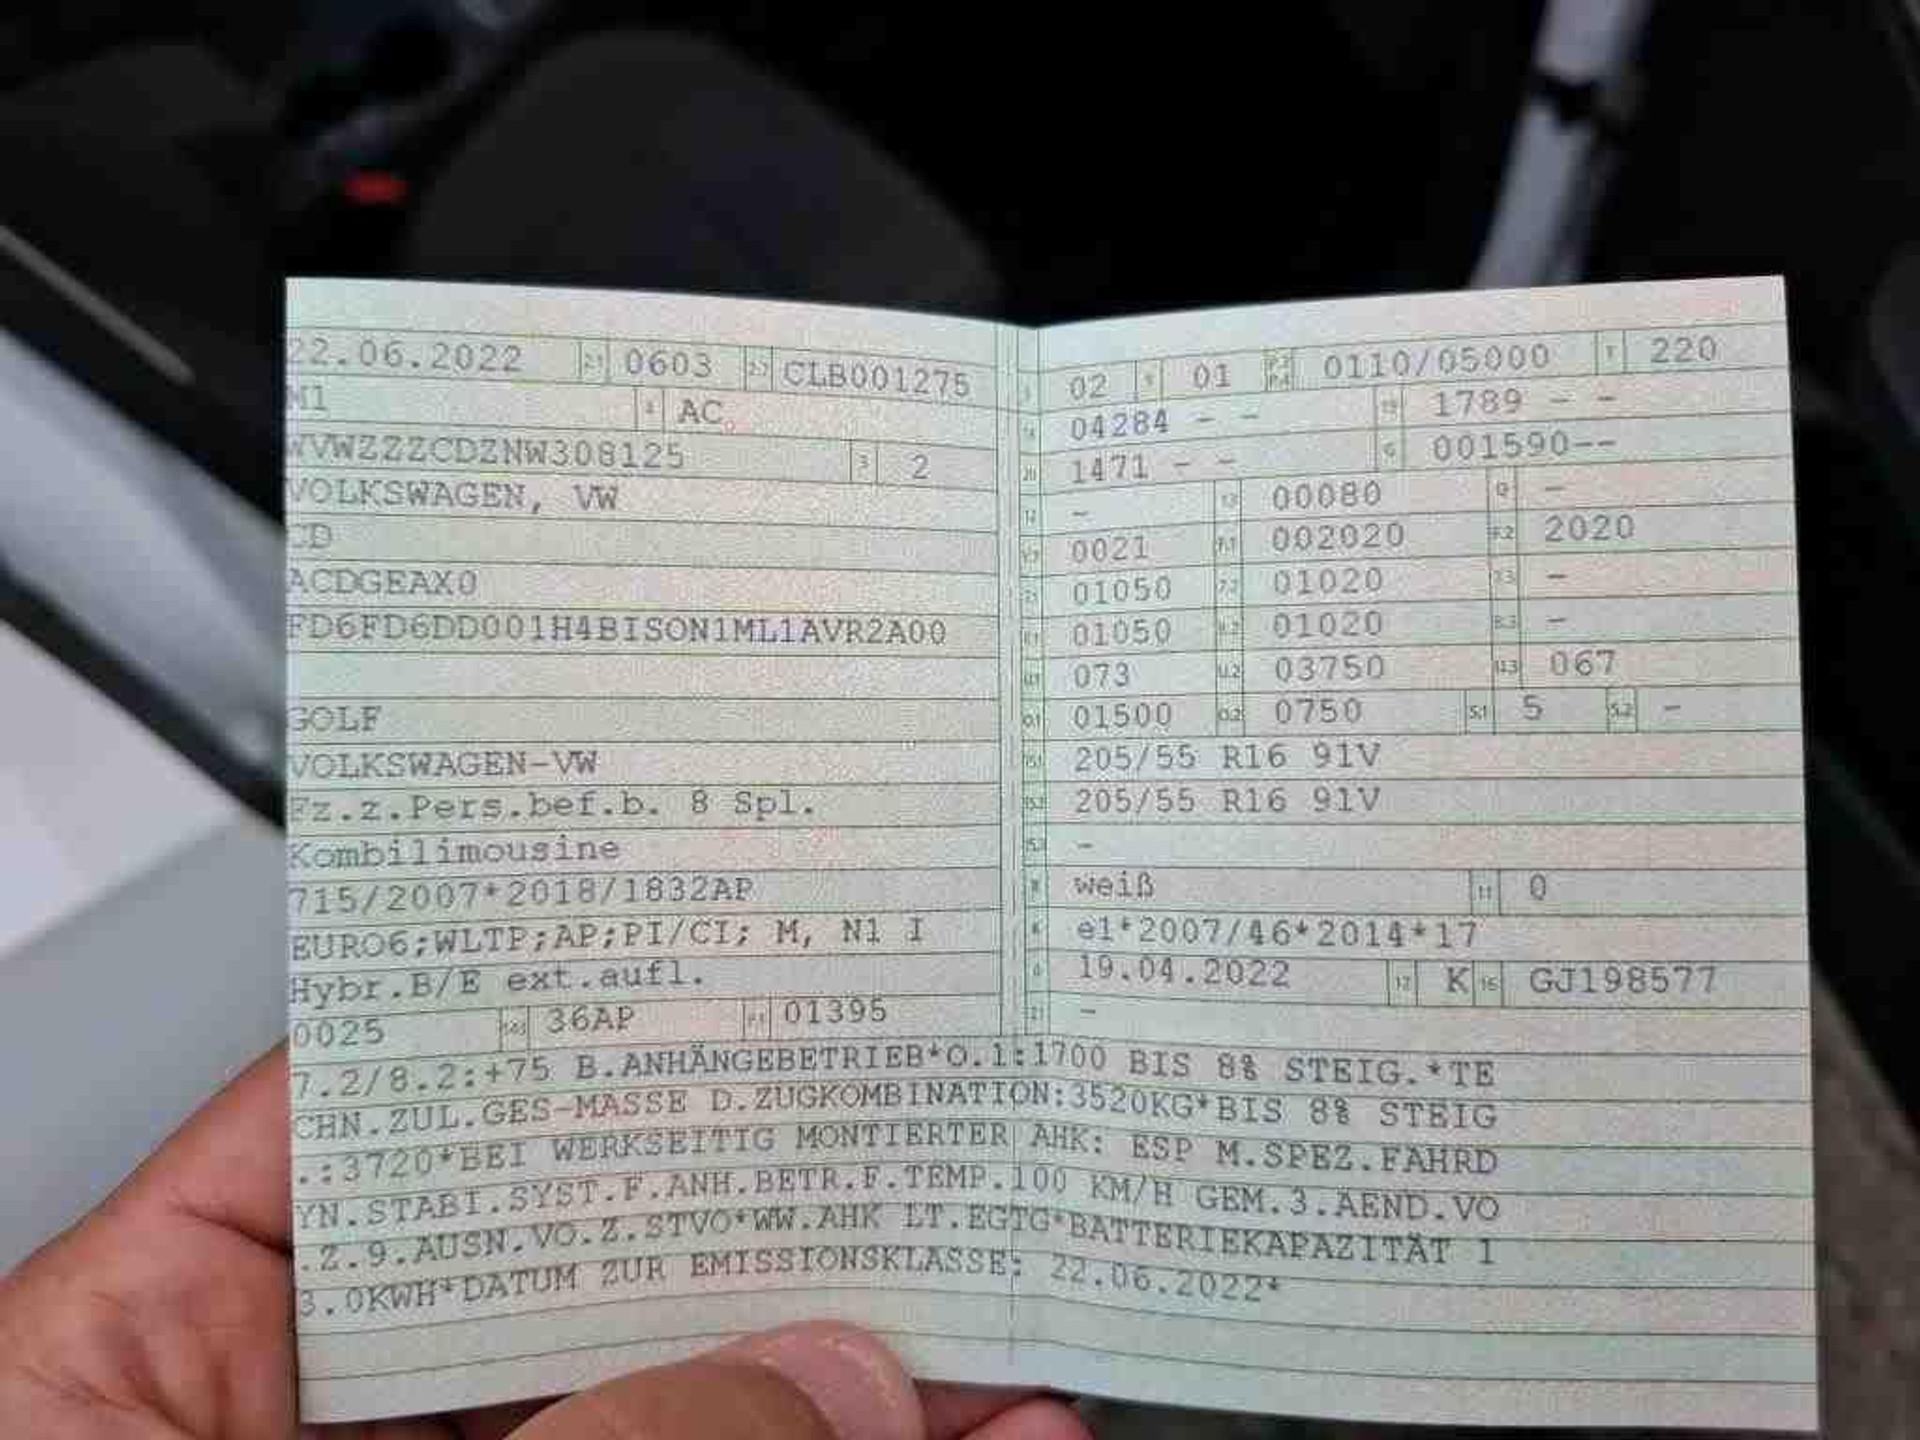 22.06.2022 2.1 0603 2.2 CLB001275
M1 4 AC
WVWZZZCDZNW308125 3 2
VOLKSWAGEN, VW
CD
ACDGEAX0
FD6FD6DD001H4BISON1ML1AVR2A00
GOLF
VOLKSWAGEN-VW
Fz.z.Pers.bef.b. 8 Spl.
Kombilimousine
715/2007*2018/1832AP
EURO6;WLTP;AP;PI/CI; M, N1 I
Hybr.B/E ext.aufl.
0025 14.1 36AP P.1 01395
L 02 9 01 P.2 P.4 0110/05000 T 220
18 04284 - - 19 1789 - -
20 1471 - - G 001590--
12 - 13 00080 Q -
V.7 0021 F.1 002020 F.2 2020
7.1 01050 7.2 01020 7.3 -
8.1 01050 8.2 01020 8.3 -
U.1 073 U.2 03750 U.3 067
O.1 01500 O.2 0750 S.1 5 S.2 -
15.1 205/55 R16 91V
15.2 205/55 R16 91V
15.3 -
R weiß 11 0
K e1*2007/46*2014*17
6 19.04.2022 17 K 16 GJ198577
21 -
7.2/8.2:+75 B.ANHÄNGEBETRIEB*O.1:1700 BIS 8% STEIG.*TE
CHN.ZUL.GES-MASSE D.ZUGKOMBINATION:3520KG*BIS 8% STEIG
.:3720*BEI WERKSEITIG MONTIERTER AHK: ESP M.SPEZ.FAHRD
YN.STABI.SYST.F.ANH.BETR.F.TEMP.100 KM/H GEM.3.AEND.VO
.Z.9.AUSN.VO.Z.STVO*WW.AHK LT.EGTG*BATTERIEKAPAZITÄT 1
3.0KWH*DATUM ZUR EMISSIONSKLASSE: 22.06.2022*